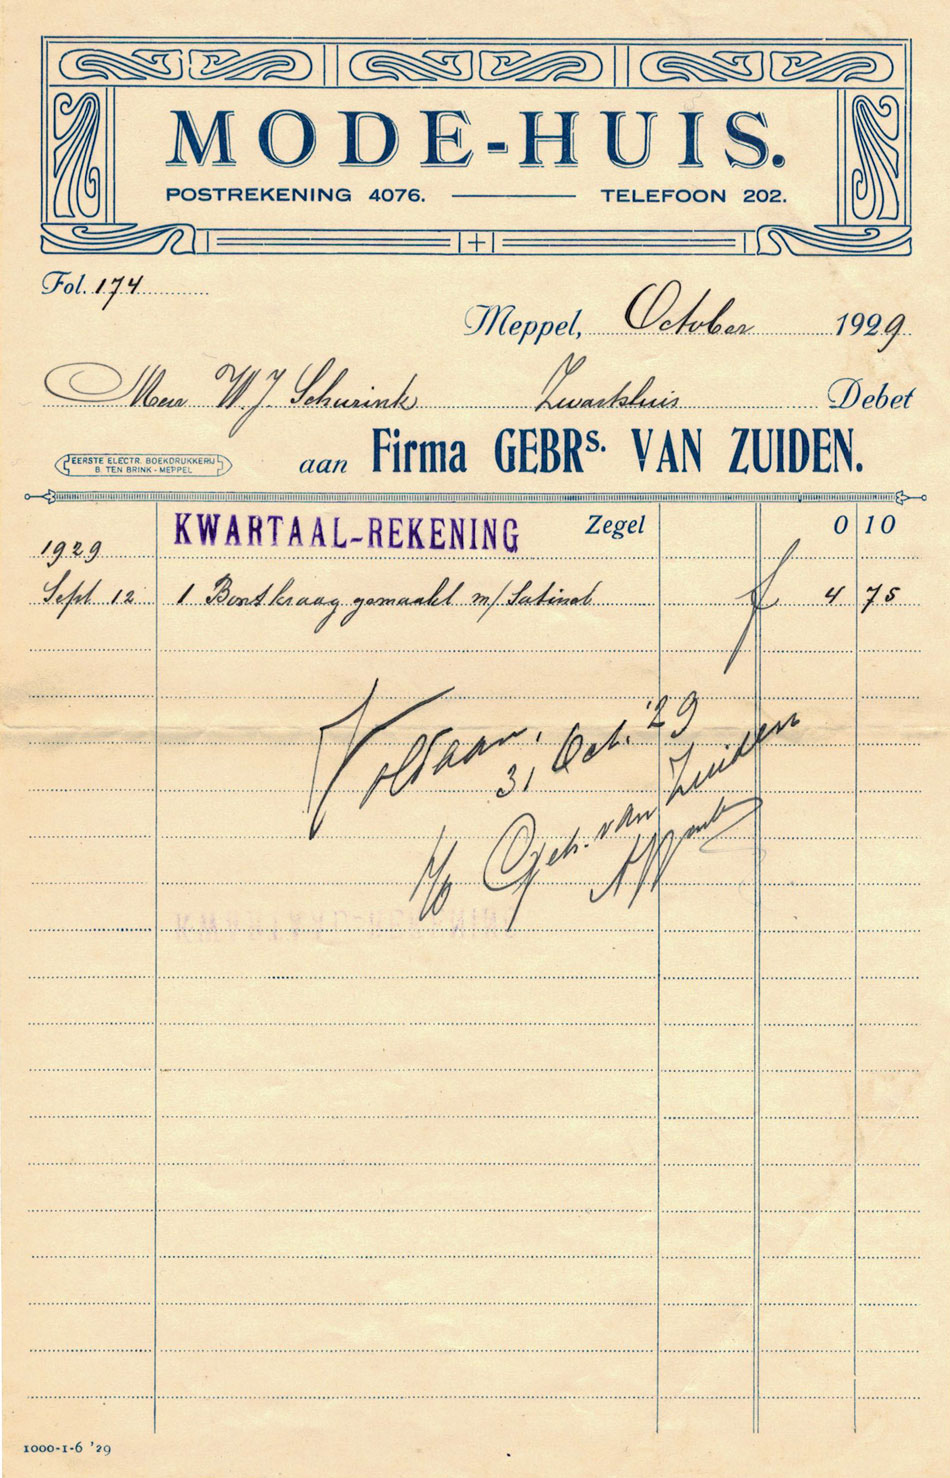 MODE-HUIS.
POSTREKENING 4076. TELEFOON 202.
Fol. 174
Meppel, October 1929
W. J. Schurink Zwartsluis Debet
EERSTE ELECTR. BOEKDRUKKERIJ
B. TEN BRINK - MEPPEL
aan Firma GEBRS. VAN ZUIDEN.
KWARTAAL-REKENING Zegel 0 10
1929
Sept 12 1 Bontkraag gemaakt m/ Satinet f 4 75
Voldaan.
31 Oct. '29
Geb. van Zuiden
KWARTAAL-REKENING
1000-1-6 '29